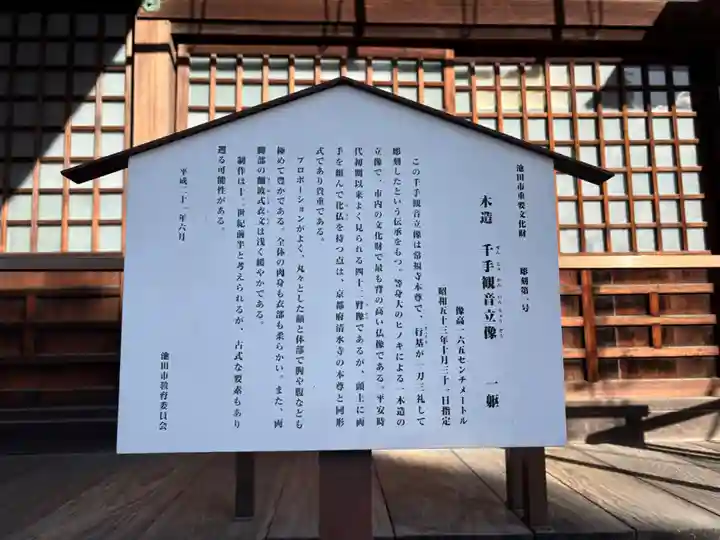 池田市重要文化財　彫刻第一号
木造　千手観音立像　一躯
せんじゅかんのんりゅうぞう
像高一六五センチメートル
昭和五十三年十月三十一日指定
この千手観音立像は常福寺本尊で、行基が一刀三礼して
彫刻したという伝承をもつ。等身大のヒノキによる一木造の
立像で、市内の文化財で最も背の高い仏像である。平安時
代初期以来よく見られる四十二臂像であるが、頭上に両
手を組んで化仏を持つ点は、京都府清水寺の本尊と同形
式であり貴重である。
プロポーションがよく、丸々とした顔と体部で胸や腹なども
極めて豊かである。全体の肉身も衣部も柔らかい。また、両
脚部の翻波式衣文は浅く緩やかである。
制作は十一世紀前半と考えられるが、古式な要素もあり
遡る可能性がある。
平成二十一年六月
池田市教育委員会